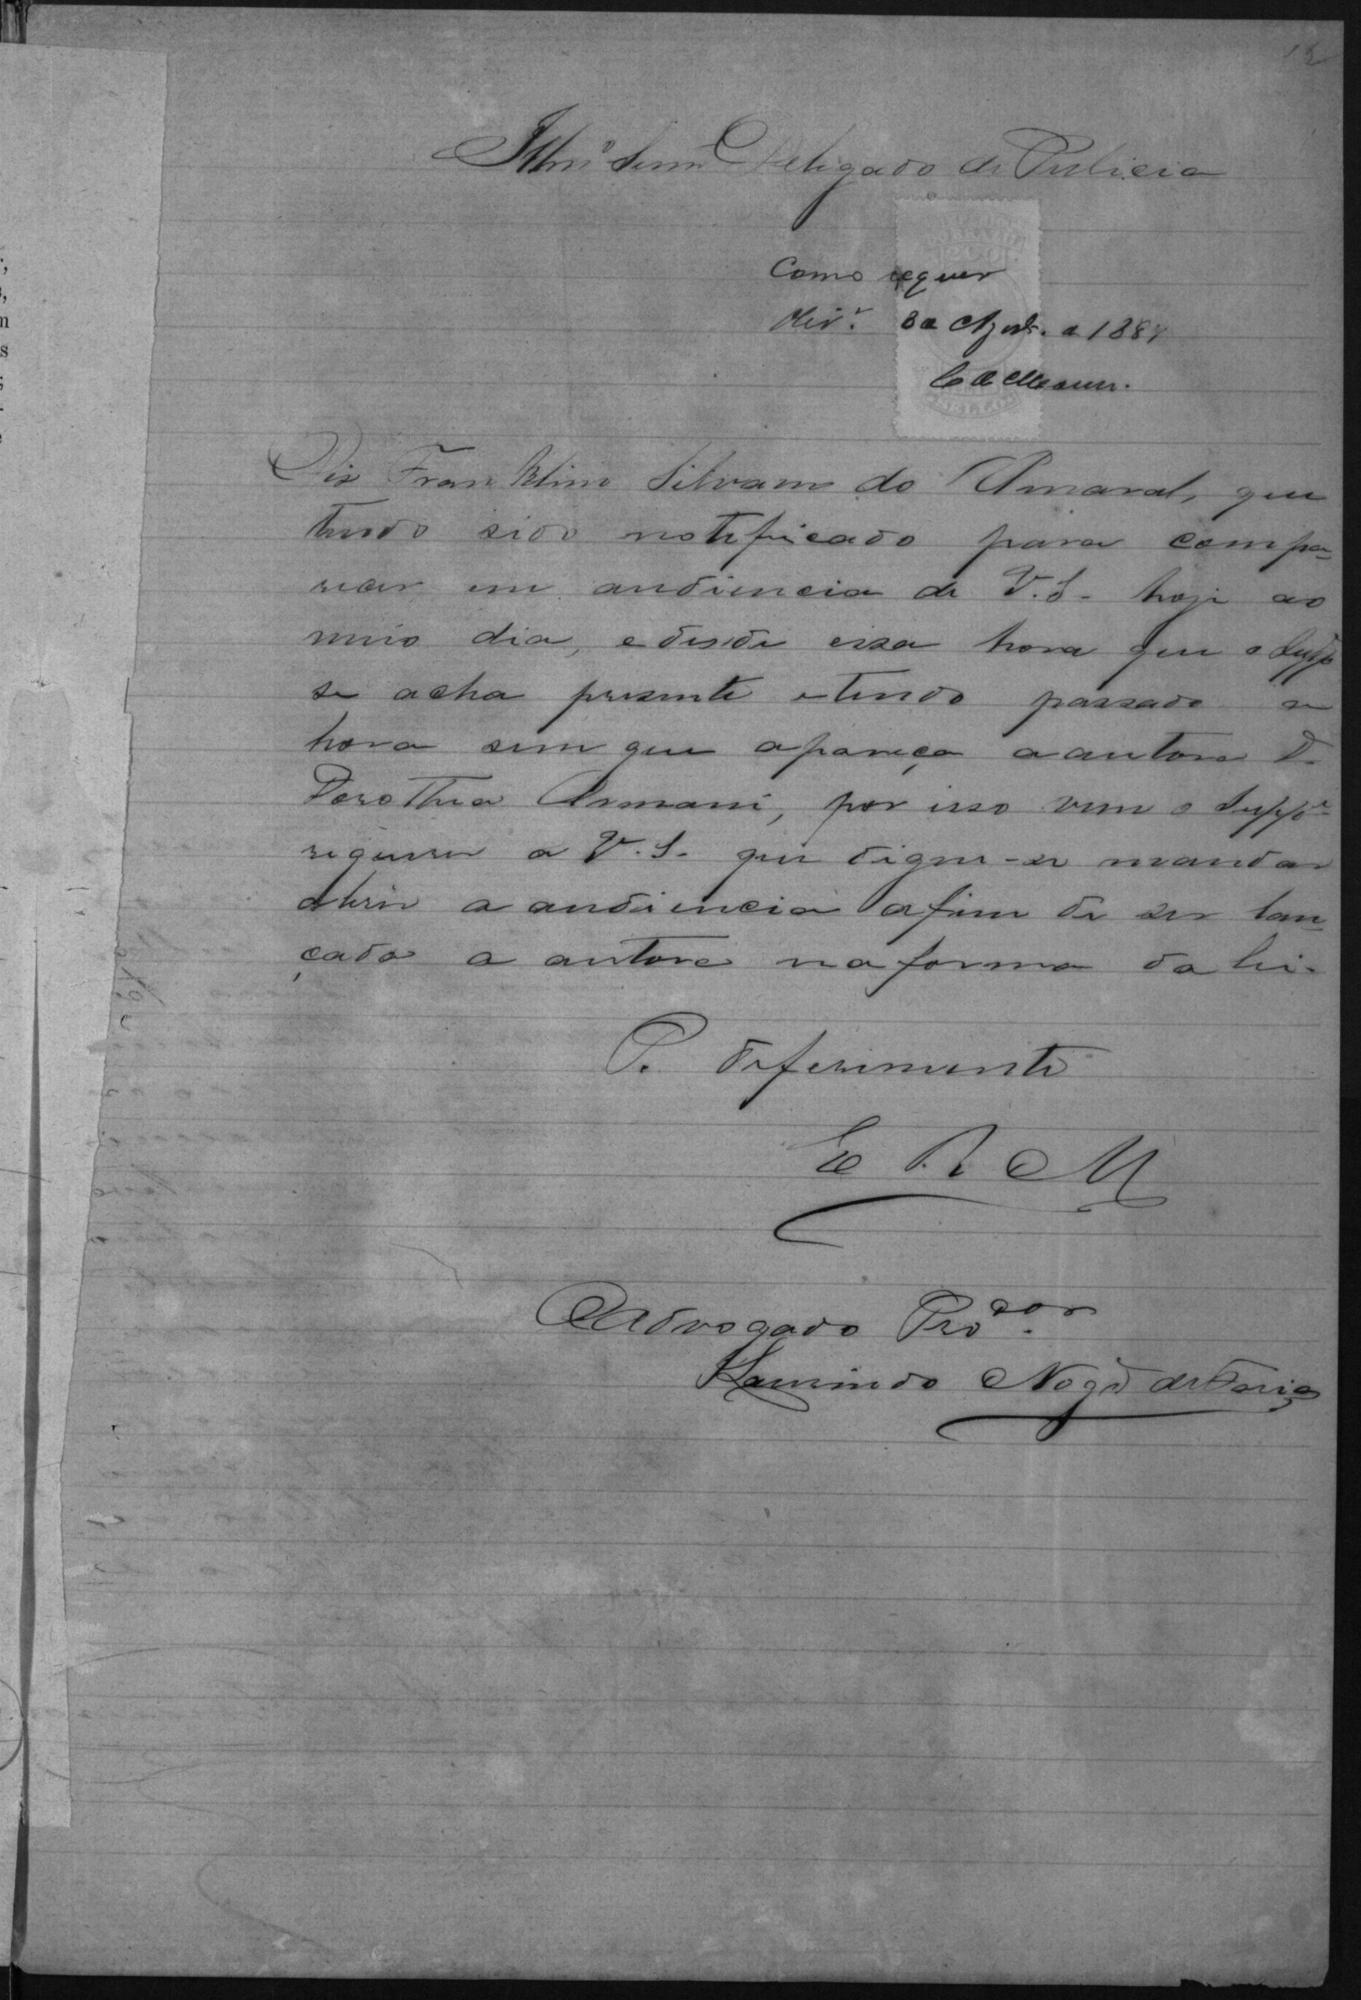 12
Illmº Senr. Delegado de Policia
Como requer
8 de Agosto de 1887
Diz Franklim Silvano do Amaral, que
tendo sido notificado para compa-
recer em audiencia de V.S. hoje ao
meio dia, e desde essa hora que o Suppe
se acha presente e tendo passado a
hora sem que apareça a autora D.
Dorothea Armani, por isso vem o Suppe
requerer a V.S. que digne-se mandar
abrir a audiencia a fim de ser lan-
çada a autora na forma da lei.
P. deferimento
E R M
Advogado Prodor.
Laurindo Nogrª de Faria